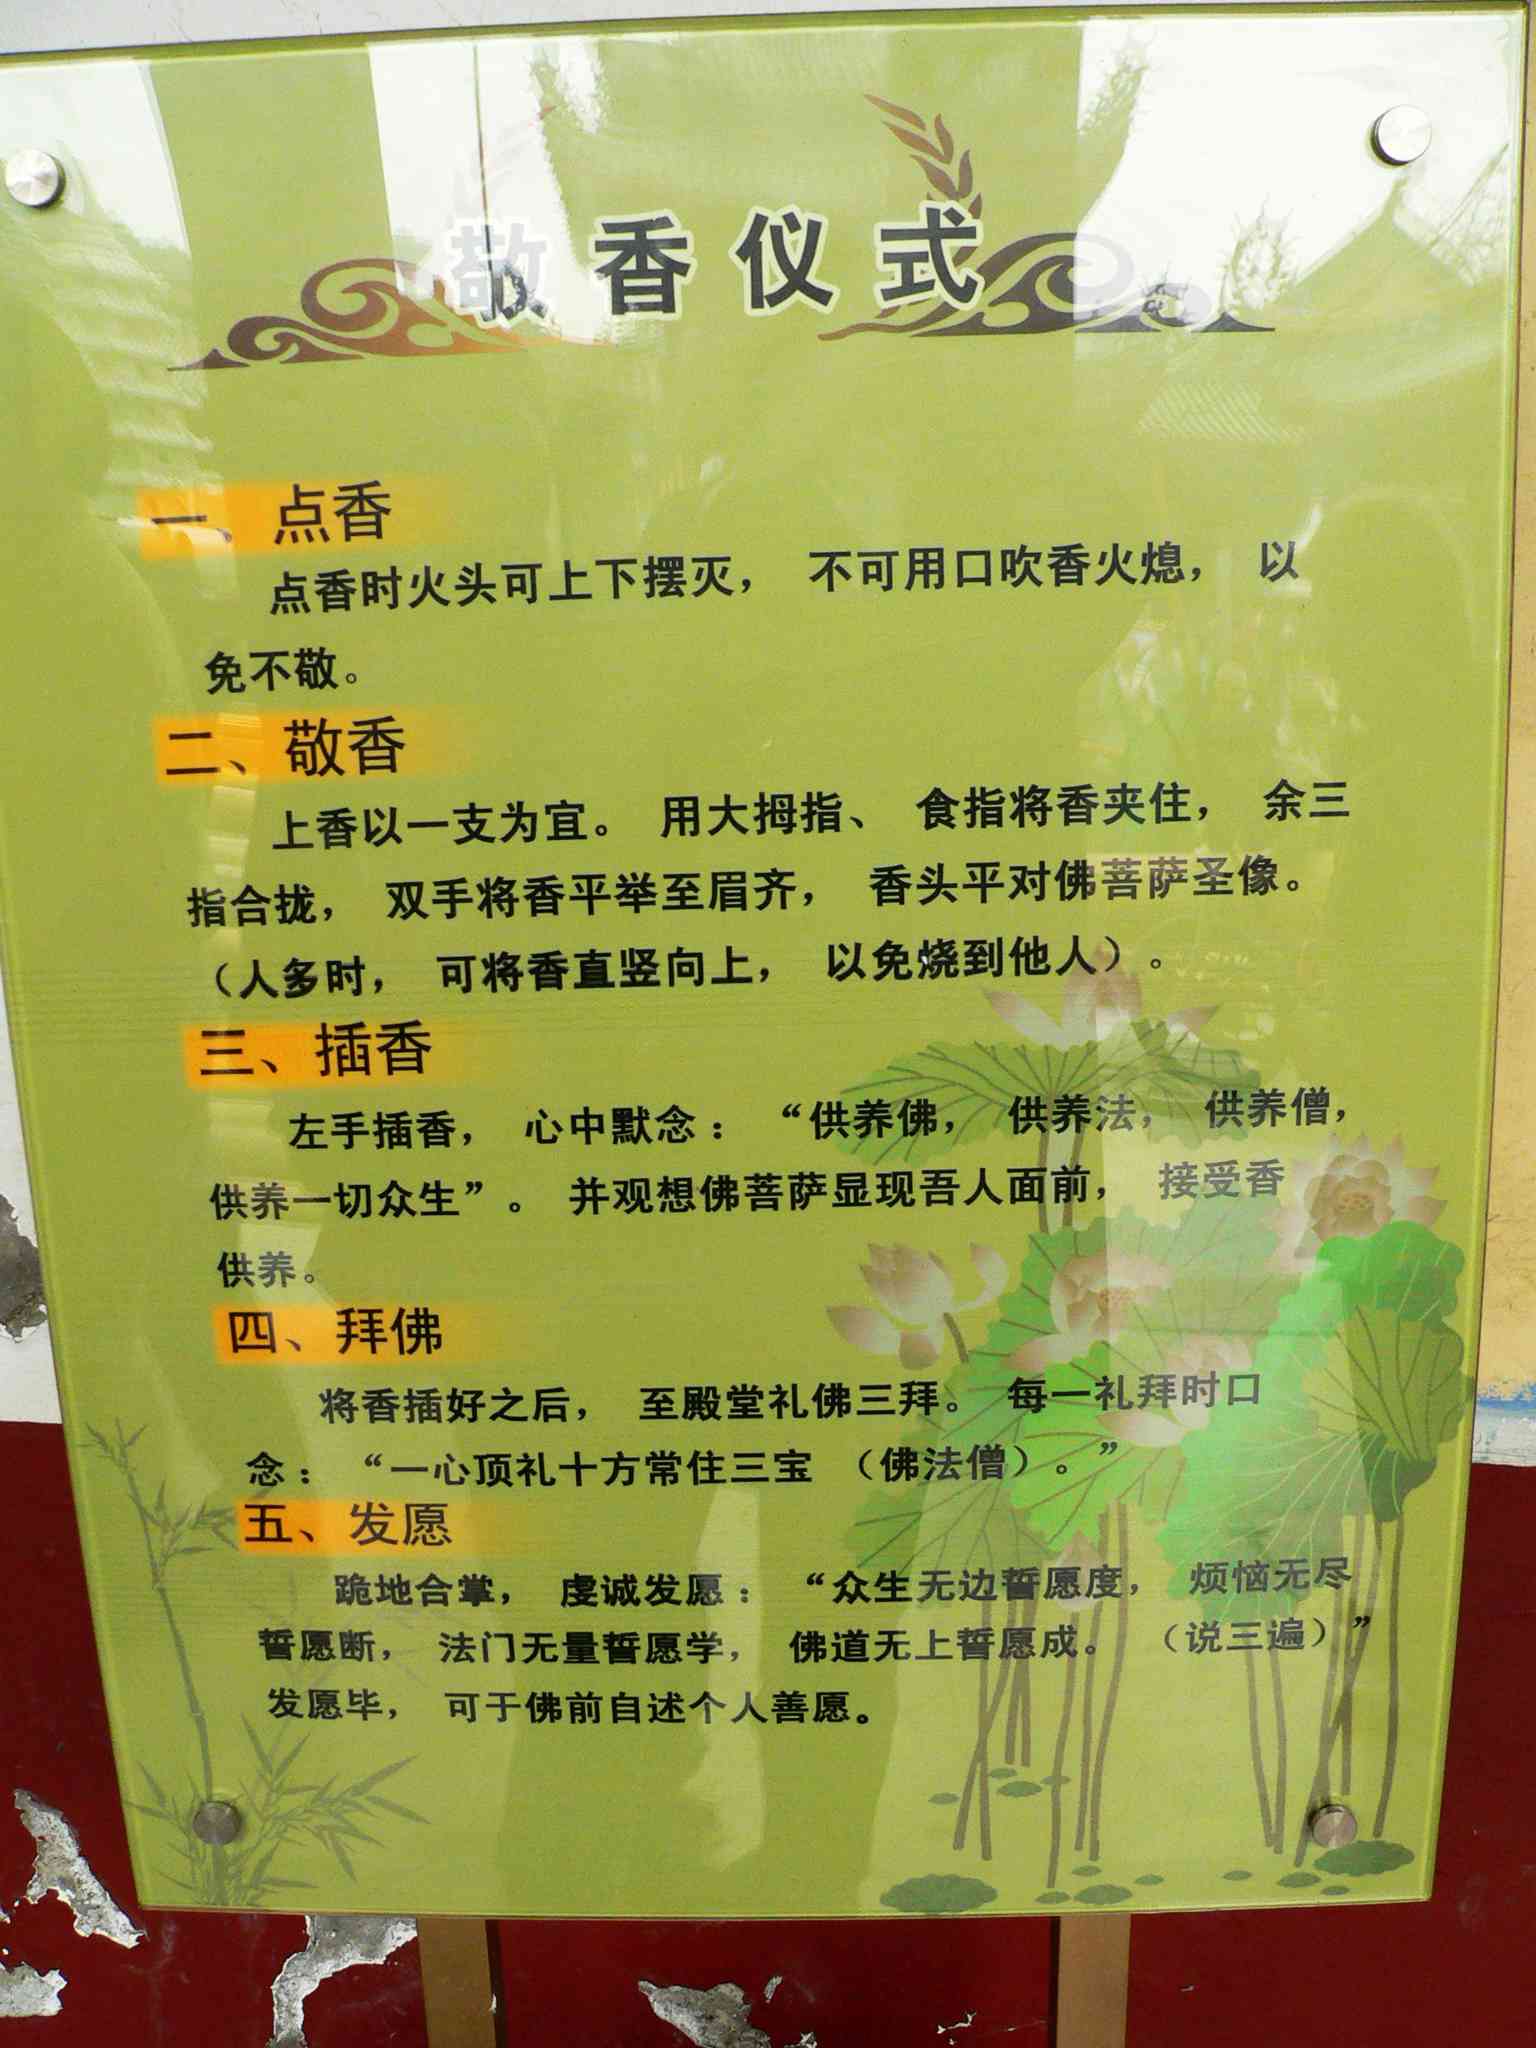 敬香仪式
一、点香
点香时火头可上下摆灭，不可用口吹香火熄，以
免不敬。
二、敬香
上香以一支为宜。用大拇指、食指将香夹住，余三
指合拢，双手将香平举至眉齐，香头平对佛菩萨圣像。
（人多时，可将香直竖向上，以免烧到他人）。
三、插香
左手插香，心中默念：“供养佛，供养法，供养僧，
供养一切众生”。并观想佛菩萨显现吾人面前，接受香
供养。
四、拜佛
将香插好之后，至殿堂礼佛三拜。每一礼拜时口
念：“一心顶礼十方常住三宝（佛法僧）。”
五、发愿
跪地合掌，虔诚发愿：“众生无边誓愿度，烦恼无尽
誓愿断，法门无量誓愿学，佛道无上誓愿成。（说三遍）”
发愿毕，可于佛前自述个人善愿。